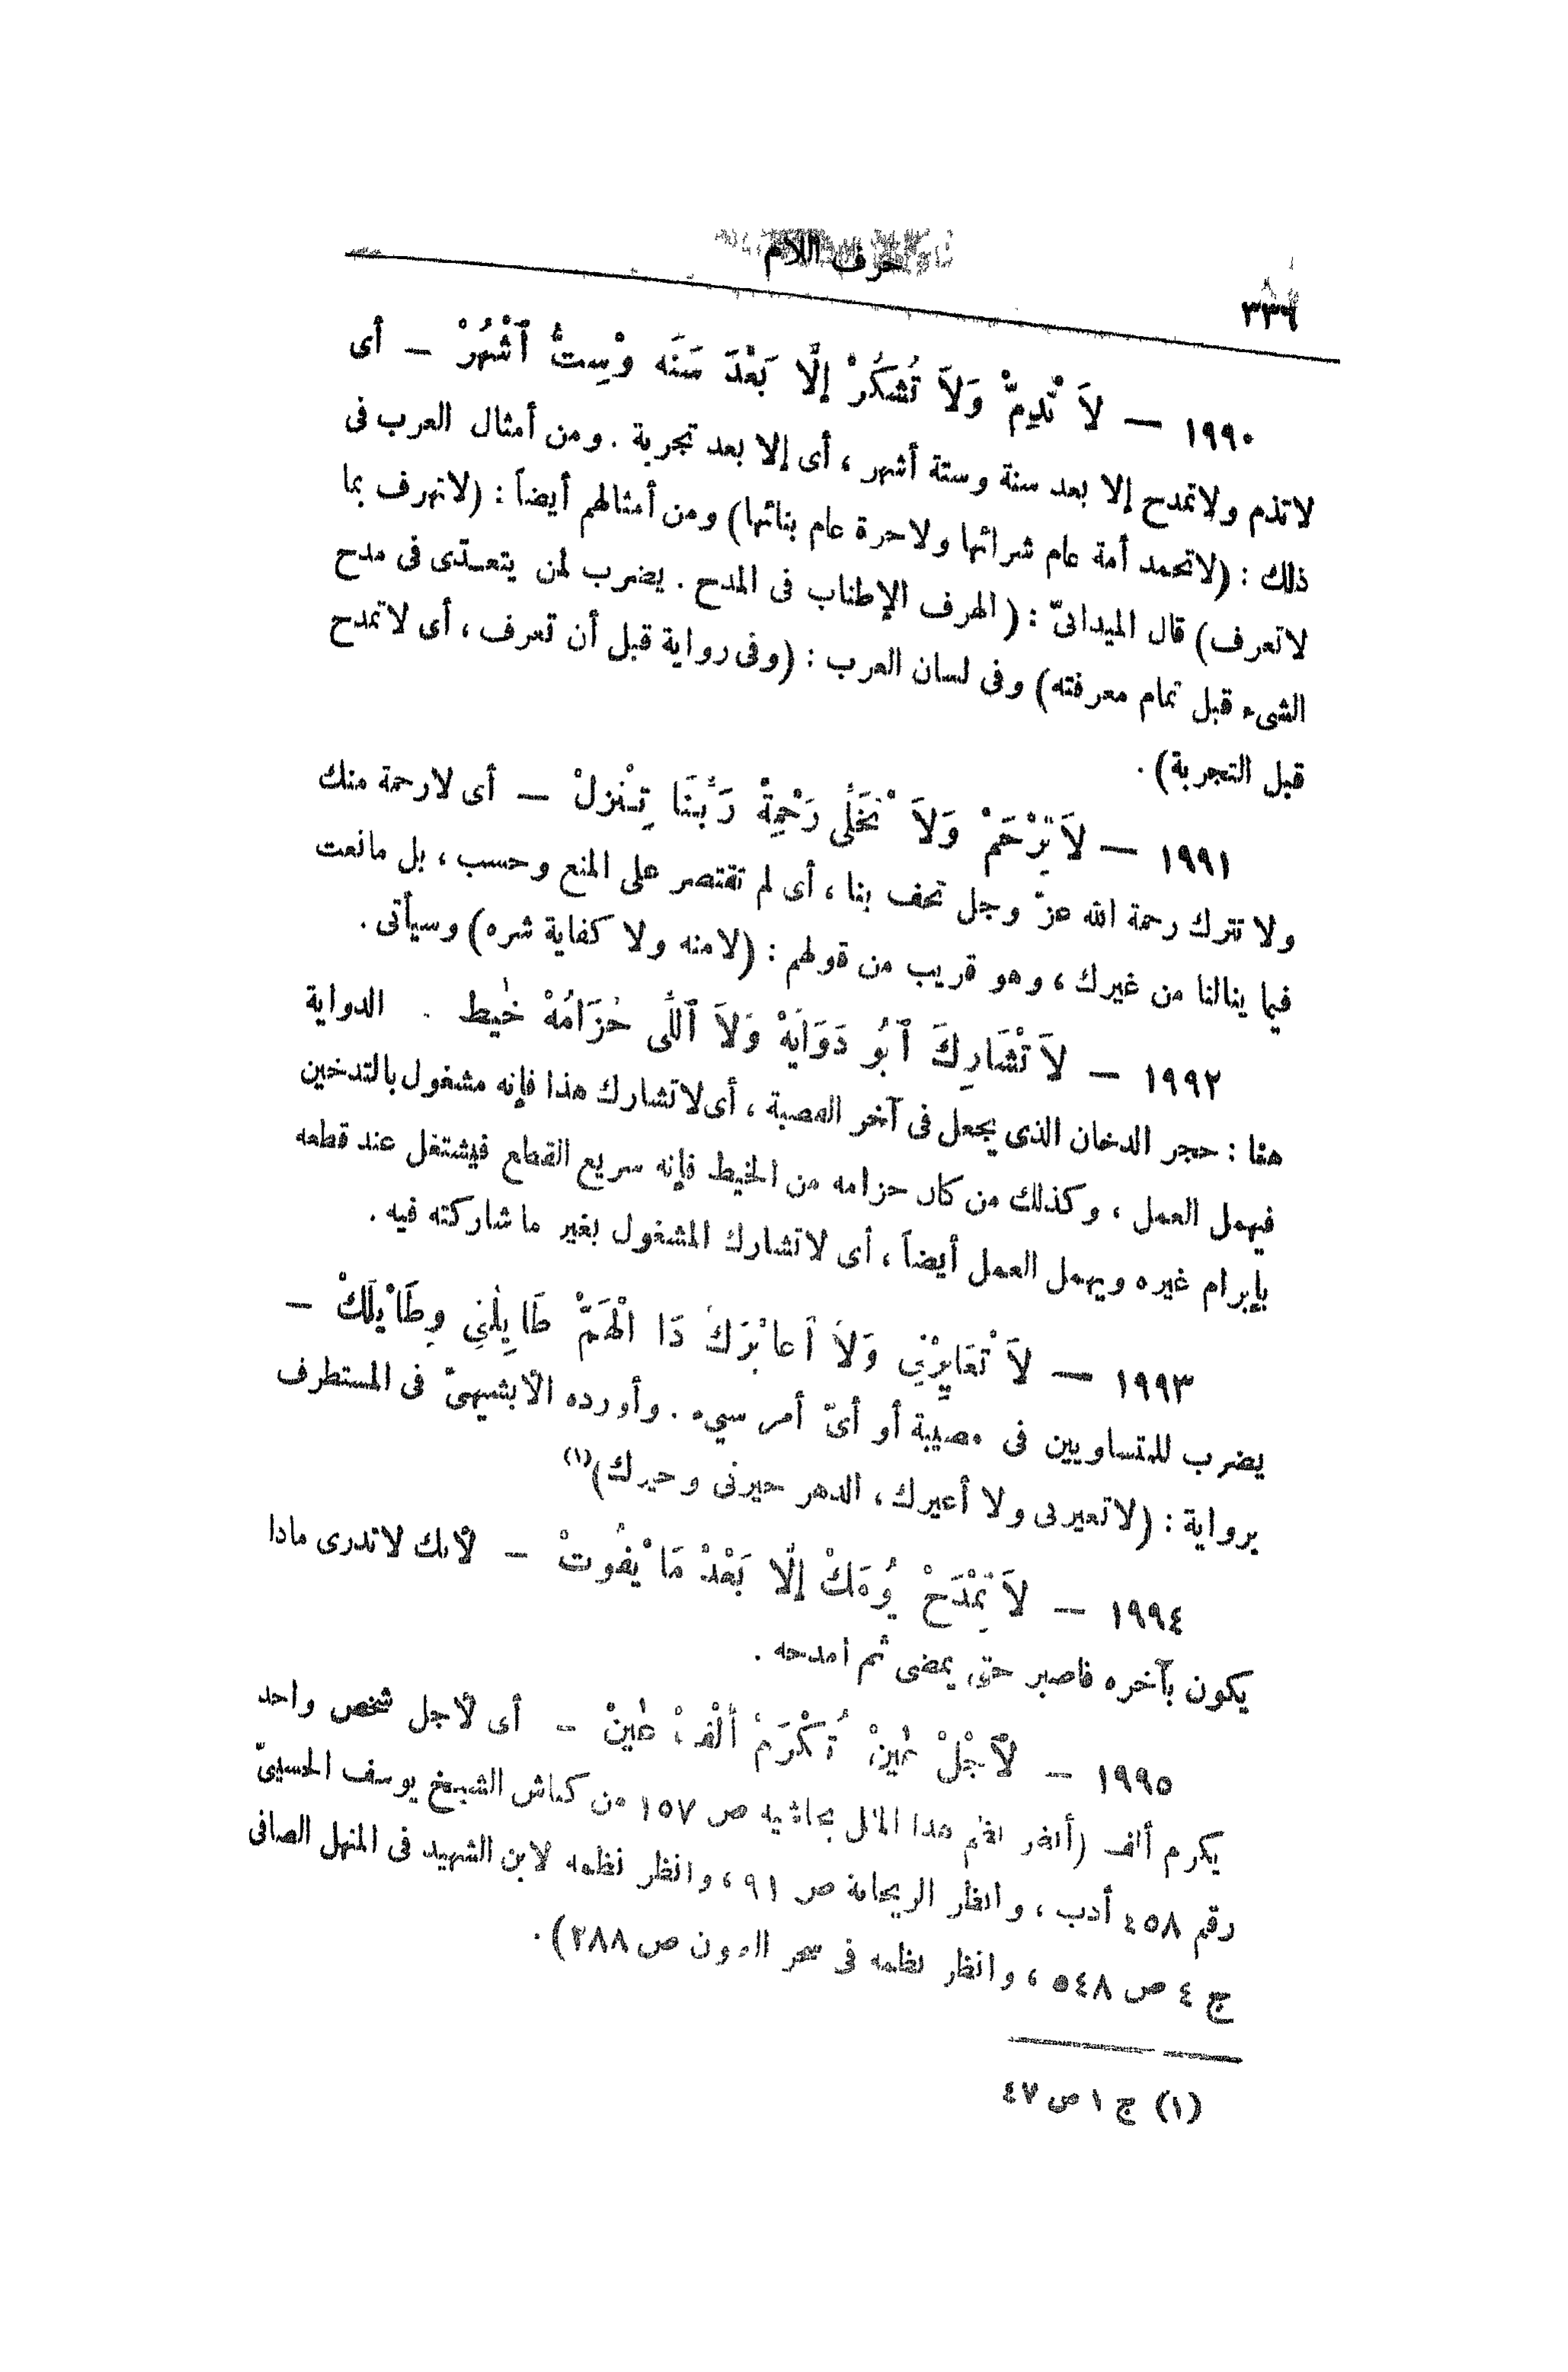 حرف اللام
٣٣٦
١٩٩٠ — لاَ تْدِمّْ وَلاَ تُشْكُرْ إلَّا بَعْدَ سَنَه وْسِتّْ ٱشْهُرْ — أى
لا تذم ولا تمدح إلا بعد سنة وستة أشهر ، أى إلا بعد تجربة . ومن أمثال العرب فى
ذلك : (لا تحمد أمة عام شرائها ولا حرة عام بنائها) ومن أمثالهم أيضاً : (لا تهرف بما
لا تعرف) قال الميدانىّ : (الهرف الإطناب فى المدح . يضرب لمن يتعدّى فى مدح
الشىء قبل تمام معرفته) وفى لسان العرب : (وفى رواية قبل أن تعرف ، أى لا تمدح
قبل التجربة) .
١٩٩١ — لاَ تِرْحَمْ وَلاَ تْخَلِّى رَحْمِةْ رَبِّنَا تِنْزِلْ — أى لا رحمة منك
ولا تترك رحمة الله عزّ وجل تحف بنا ، أى لم تقتصر على المنع وحسب ، بل مانعت
فيما ينالنا من غيرك ، وهو قريب من قولهم : (لا منه ولا كفاية شره) وسيأتى .
١٩٩٢ — لاَ تْشَارِكَ ٱبُو دَوَايَهْ وَلاَ ٱللِّى حْزَامُهْ خيط . الدواية
هنا : حجر الدخان الذى يجعل فى آخر القصبة ، أى لا تشارك هذا فإنه مشغول بالتدخين
فيهمل العمل ، وكذلك من كان حزامه من الخيط فإنه سريع القطع فيشتغل عند قطعه
بإبرام غيره ويهمل العمل أيضاً ، أى لا تشارك المشغول بغير ما شاركته فيه .
١٩٩٣ — لاَ تْعَايِرْنِي وَلاَ أعَايْرَكْ دَا الْهَمّْ طَايِلْنِي وِطَايْلَكْ —
يضرب للمتساويين فى مصيبة أو أىّ أمر سيء . وأورده الأبشيهىّ فى المستطرف
برواية : (لا تعيرنى ولا أعيرك ، الدهر حيرنى وحيرك)(١)
١٩٩٤ — لاَ تِمْدَحْ يُومَكْ إلَّا بَعْدْ مَا يْفُوتْ — لأنك لا تدرى ماذا
يكون بآخره فاصبر حتى يمضى ثم امدحه .
١٩٩٥ — لَأجْلْ عينْ تُكْرَمْ ألْفْ عينْ — أى لأجل شخص واحد
يكرم ألف (أنظر نظم هذا المثل بحاشية ص ١٥٧ من كناش الشيخ يوسف الحسينىّ
رقم ٤٥٨ أدب ، وانظر الريحانة ص ٩١ ، وانظر نظمه لابن الشهيد فى المنهل الصافى
ج ٤ ص ٥٤٨ ، وانظر نظمه فى سحر العيون ص ٢٨٨) .
(١) ج ١ ص ٤٧